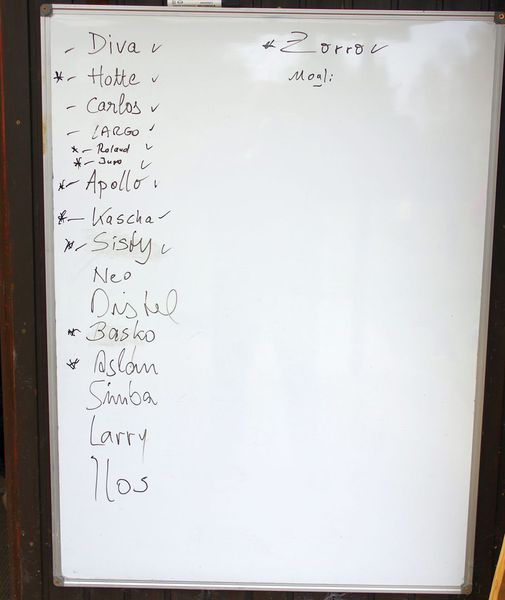 - Diva ✓
* - Hotte ✓
- Carlos ✓
- LARGO ✓
* - Roland ✓
* - Juro ✓
* - Apollo ✓
* - Kascha ✓
* - Sisty ✓
Neo
Distel
* Basko
* Aslan
Simba
Larry
Ilos
* Zorro ✓
Mogli